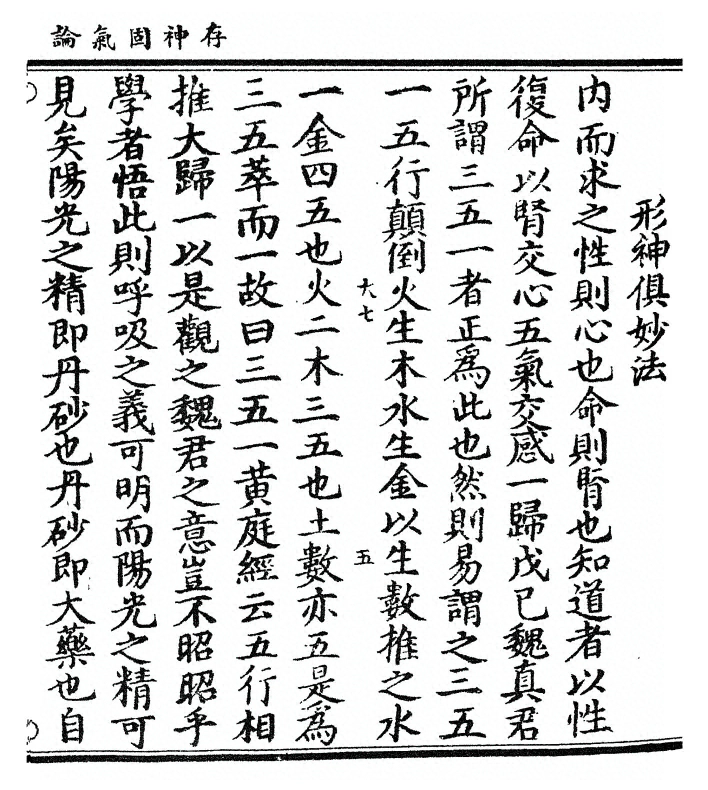 存神固氣論
形神俱妙法
内而求之性則心也命則腎也知道者以性
復命以腎交心五氣交感一歸戊已魏真君
所謂三五一者正爲此也然則易謂之三五
一五行顛倒火生木水生金以生數推之水
大七
五
一金四五也火二木三五也土數亦五是爲
三五萃而一故曰三五一黄庭經云五行相
推大歸一以是觀之魏君之意豈不昭昭乎
學者悟此則呼吸之義可明而陽光之精可
見矣陽光之精即丹砂也丹砂即大藥也自